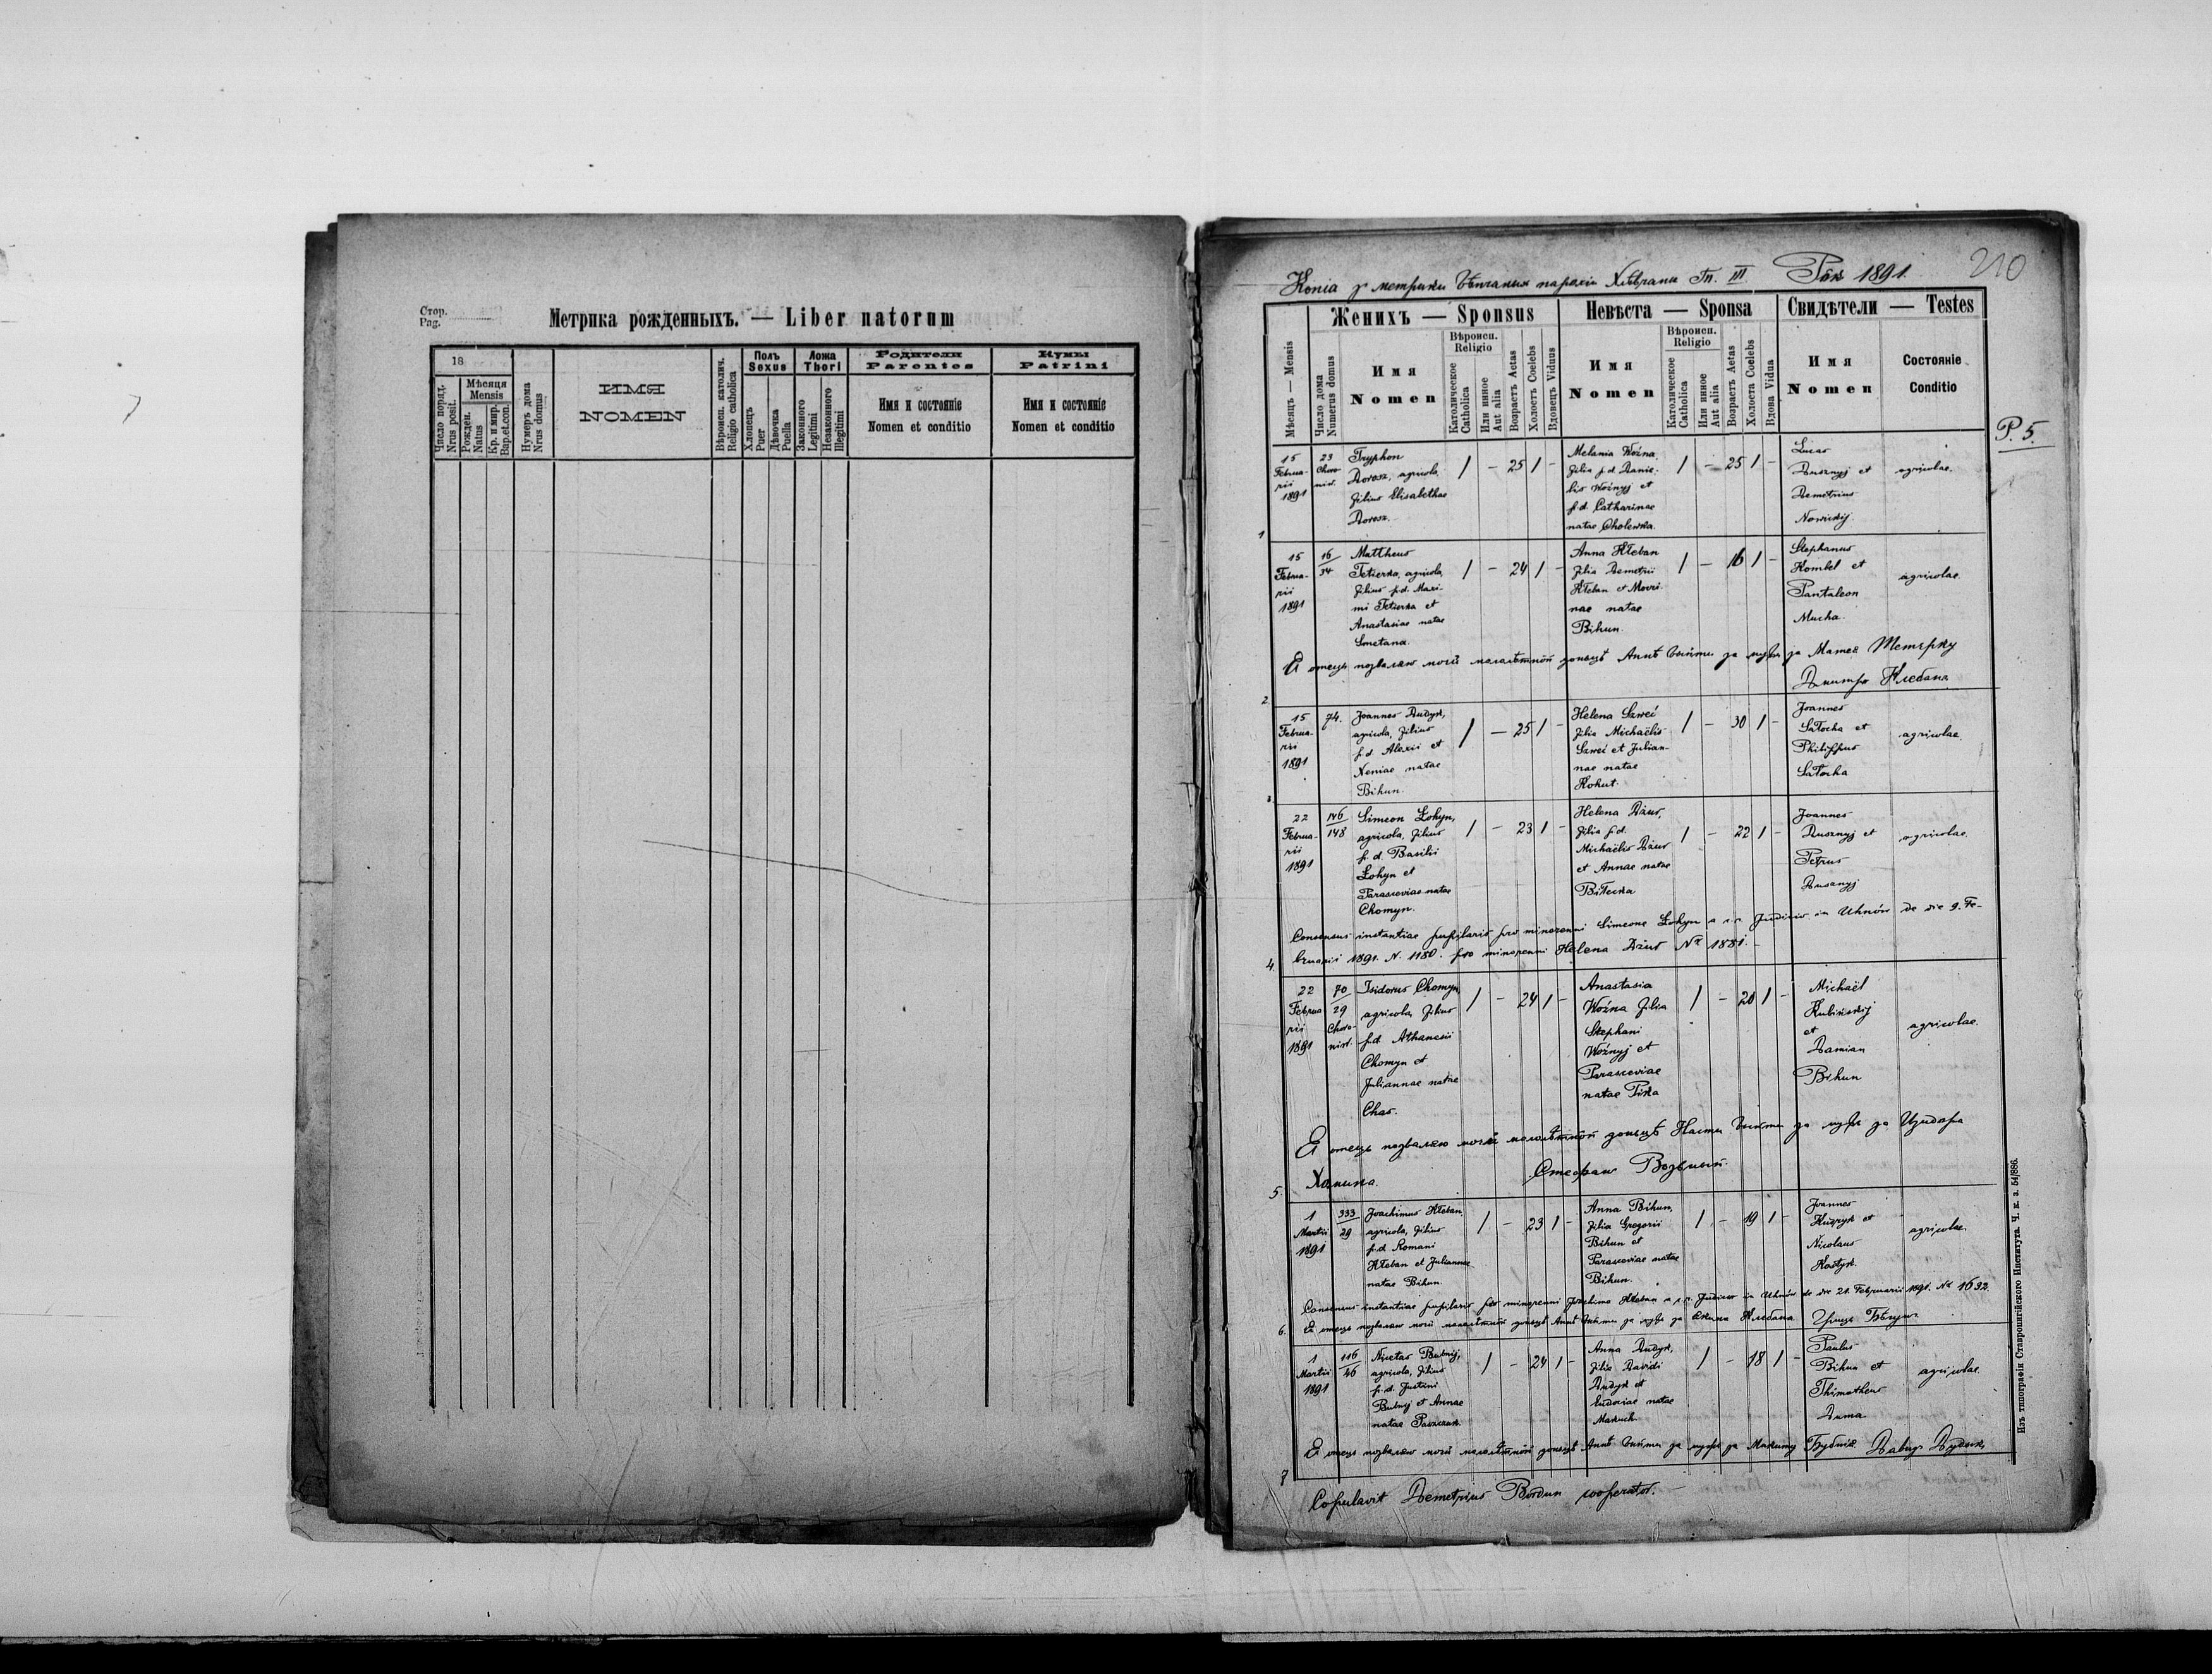 Стор.
Pag.
Метрика рожденныхъ. — Liber natorum
18
Число поряд.
Nrus posit.
Мѣсяця
Mensis
Рожден.
Natus
Кр. и мир.
Bap. et. con.
Нумеръ дома
Nrus domus
ИМЯ
NOMEN
Вѣроисп. католич.
Religio catholica
Полъ
Sexus
Хлопецъ
Puer
Дѣвочка
Puella
Ложа
Thori
Законного
Legitimi
Незаконного
Illegitimi
Родители
Parentes
Имя и состояніе
Nomen et conditio
Кумы
Patrini
Имя и состояніе
Nomen et conditio
Копія з метрики вѣнчаныхъ парохіи Хлѣвчаны Т. III Рôкъ 1891.
210
P. 5.
Мѣсяцъ — Mensis
Число дома
Numerus domus
Женихъ — Sponsus
Имя
Nomen
Вѣроисп.
Religio
Католическое
Catholica
Или инное
Aut alia
Возрастъ Aetas
Холостъ Coelebs
Вдовецъ Viduus
Невѣста — Sponsa
Имя
Nomen
Вѣроисп.
Religio
Католическое
Catholica
Или инное
Aut alia
Возрастъ Aetas
Холоста Coelebs
Вдова Vidua
Свидѣтели — Testes
Имя
Nomen
Состояніе
Conditio
1
15
Februa-
rii
1891
23
Chow-
nist.
Tryphon
Dorosz, agricola,
filius Elisabethae
Dorosz.
1 — 25 1 —
Melania Woźna,
filia p.d. Danie-
lis Woźnyj et
p.d. Catharinae
natae Cholewka.
1 — 25 1 —
Lucas
Dusznyj et
Demetrius
Nowickij.
agricolae.
2.
15
Februa-
rii
1891
16
34
Mattheus
Tetierka, agricola,
filius p.d. Maxi-
mi Tetierka et
Anastasiae natae
Smetana.
1 — 24 1 —
Anna Hłeban
filia Demetrii
Hłeban et Mari-
nae natae
Bihun.
1 — 16 1 —
Stephanus
Kombel et
Pantaleon
Mucha.
agricolae.
Я отецъ позваляю моєй малолѣтнôй доньцѣ Аннѣ выйти за мужъ за Матея Тетерку
Дмитро Хлебанъ
3.
15
Februa-
rii
1891
74.
Joannes Dudyk,
agricola, filius
p.d. Alexii et
Xeniae natae
Bihun.
1 — 25 1 —
Helena Szweć
filia Michaëlis
Szweć et Julian-
nae natae
Kohut.
1 — 30 1 —
Joannes
Sałocha et
Philippus
Sałocha
agricolae.
4.
22
Februa-
rii
1891
146
148
Simeon Łohyn,
agricola, filius
p.d. Basilii
Łohyn et
Parasceviae natae
Chomyn.
1 — 23 1 —
Helena Dżus,
filia p.d.
Michaëlis Dżus
et Annae natae
Biłecka
1 — 22 1 —
Joannes
Dusznyj et
Petrus
Dusznyj
agricolae.
Consensus instantiae pupilaris pro minorenni Simeone Łohyn a c.r. Judicio in Uhnów de die 9. Fe-
bruarii 1891. N. 1180. pro minorenni Helena Dżus Nr 1881. —
5.
22
Februa-
rii
1891
70
29
Chow-
nist.
Isidorus Chomyn,
agricola, filius
p.d. Athanasii
Chomyn et
Juliannae natae
Chas.
1 — 24 1 —
Anastasia
Woźna filia
Stephani
Woźnyj et
Parasceviae
natae Pika
1 — 20 1 —
Michaël
Kubińskij
et
Damian
Bihun
agricolae.
Я отецъ позваляю моєй малолѣтнôй доньцѣ Насти выйти за мужъ за Изидора
Хомина. Стефан Возьный.
6.
1
Martii
1891
333
29
Joachimus Hłeban,
agricola, filius
p.d. Romani
Hłeban et Juliannae
natae Bihun.
1 — 23 1 —
Anna Bihun,
filia Gregorii
Bihun et
Parasceviae natae
Bihun.
1 — 19 1 —
Joannes
Kudryk et
Nicolaus
Kostyk.
agricolae.
Consensus instantiae pupilaris pro minorenni Joachimo Hłeban a c.r. Judicio in Uhnów de die 21. Februarii 1891. Nr 1632.
Я отецъ позваляю моєй малолѣтнôй доньцѣ Аннѣ выйти за мужъ за Якима Хлебана Грицъ Бѣгунъ
7
1
Martii
1891
116
46
Nicetas Bubnij,
agricola, filius
p.d. Justini
Bubnij et Annae
natae Pawczuk.
1 — 24 1 —
Anna Dudyk,
filia Davidi
Dudyk et
Eudociae natae
Makuch.
1 — 18 1 —
Paulus
Bihun et
Thimotheus
Duma
agricolae.
Я отецъ позваляю моєй малолѣтнôй доньцѣ Аннѣ выйти за мужъ за Микиту Бубнія. Давид Дудыкъ
Copulavit Demetrius Bordun cooperator. —
Изъ типографіи Ставропигійского Института. Ч. к. з. 54/886.